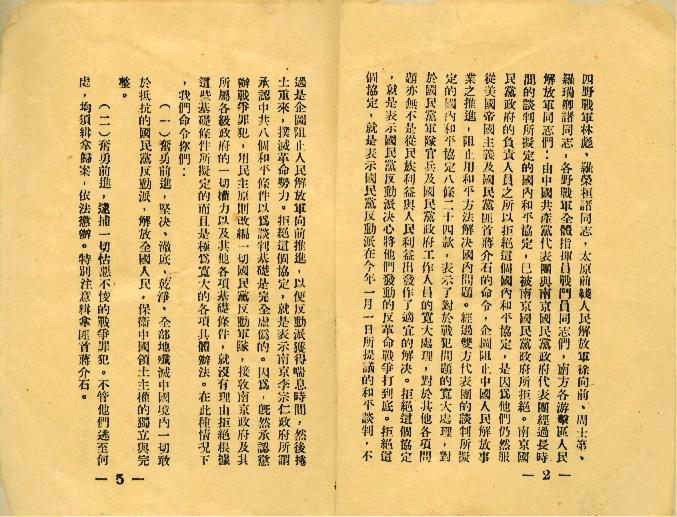 四野戰軍林彪、羅榮桓諸同志，太原前綫人民解放軍徐向前、周士第、
羅瑞卿諸同志，各野戰軍全體指揮員戰鬥員同志們，南方各游擊區人民
解放軍同志們：由中國共產黨代表團與南京國民黨政府代表團經過長時
間的談判所擬定的國內和平協定，已被南京國民黨政府所拒絕。南京國
民黨政府的負責人員之所以拒絕這個國內和平協定，是因爲他們仍然服
從美國帝國主義及國民黨匪首蔣介石的命令，企圖阻止中國人民解放事
業之推進，阻止用和平方法解決國內問題。經過雙方代表團的談判所擬
定的國內和平協定八條二十四款，表示了對於戰犯問題的寬大處理，對
於國民黨軍隊官兵及國民黨政府工作人員的寬大處理，對於其他各項問
題亦無不是從民族利益與人民利益出發作了適宜的解決。拒絕這個協定
，就是表示國民黨反動派決心將他們發動的反革命戰爭打到底。拒絕這
個協定，就是表示國民黨反動派在今年一月一日所提議的和平談判，不
— 2 —
過是企圖阻止人民解放軍向前推進，以便反動派獲得喘息時間，然後捲
土重來，撲滅革命勢力。拒絕這個協定，就是表示南京李宗仁政府所謂
承認中共八個和平條件以爲談判基礎是完全虛僞的。因爲，旣然承認懲
辦戰爭罪犯，用民主原則改編一切國民黨反動軍隊，接收南京政府及其
所屬各級政府的一切權力以及其他各項基礎條件，就沒有理由拒絕根據
這些基礎條件所擬定的而且是極爲寬大的各項具體辦法。在此種情況下
，我們命令你們：
（一）奮勇前進，堅決、澈底、乾淨、全部地殲滅中國境內一切敢
於抵抗的國民黨反動派，解放全國人民，保衞中國領土主權的獨立與完
整。
（二）奮勇前進，逮捕一切怙惡不悛的戰爭罪犯。不管他們逃至何
處，均須緝拿歸案，依法懲辦。特別注意緝拿匪首蔣介石。
— 3 —